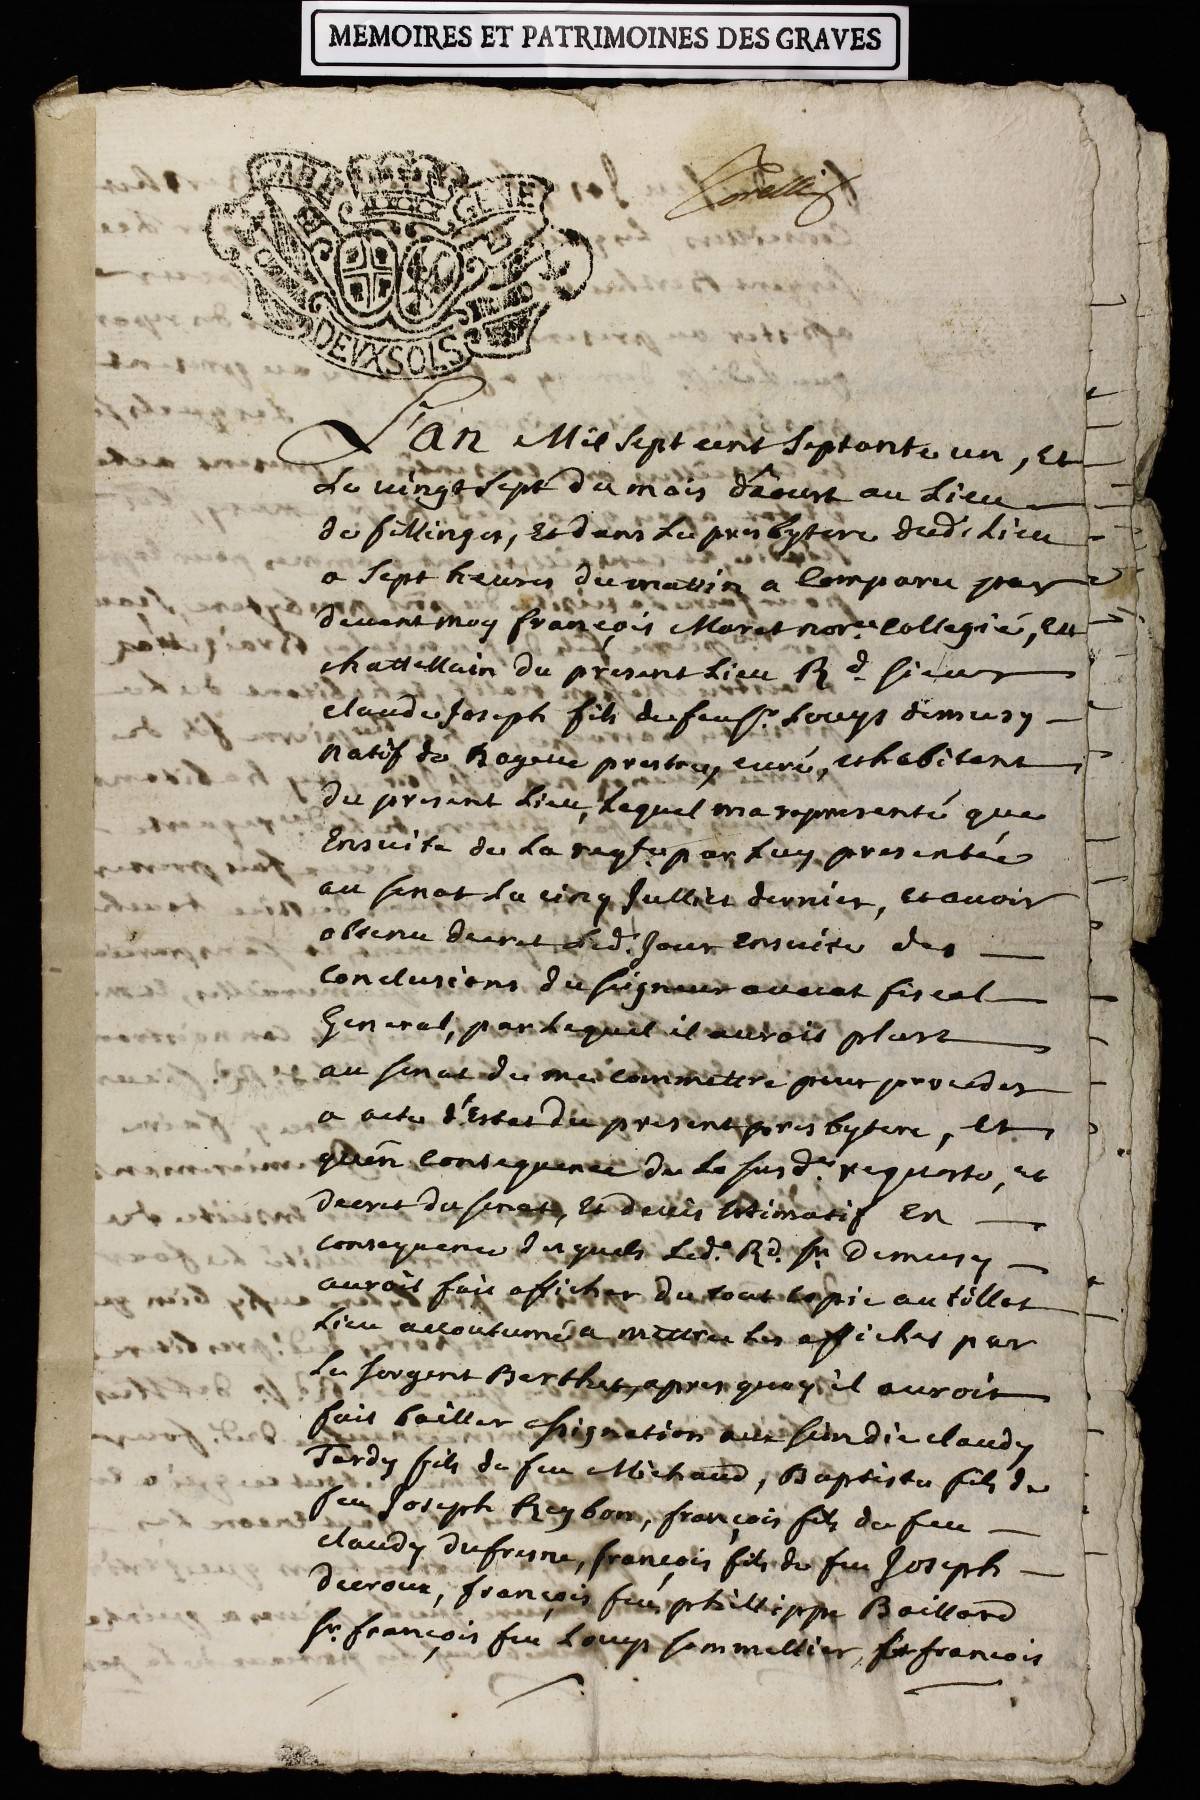 MEMOIRES ET PATRIMOINES DES GRAVES
DEVX SOLS
L'an Mil sept cent septante un, Et
Le vingt sept du mois d'aoust au Lieu
de fillinges, Et dans Le presbytere dud.t Lieu
a sept heures du mattin a Comparu par
devant moy françois Moret nor.re Collegié, Et
chattellain du present Lieu R.d sieur
claude Joseph fils de feu s.r Louys demusy
natif de prestre, curé, et habitant
du present Lieu, Lequel ma representé que
Ensuite de La reqte. par Luy presentée
au senat Le cinq Julliet dernier, et avoir
obtenu decret Led.t Jour Ensuite des
conclusions du seigneur avocat fiscal
General, par Lequel il auroit plust
au senat de me commettre pour proceder
a acte d'Estat du present presbytere, Et
qu'en consequence de La susd.te requeste, et
decret du senat, Et devis Estimatif En
consequence desquels Led.t R.d s.r Demusy
auroit fait afficher du tout copie au tillot
Lieu accoutumé a mettre Les affiches par
Le sergent Berthet, apres quoy il auroit
fait bailler assignation aux sindic claudy
Tardy fils de feu Michaud, Baptiste fils de
feu Joseph Reybon, françois fils de feu
claudy dufresne, françois fils de feu Joseph
decroux, françois feu phillippe Baillard
s.r françois feu Louys françois